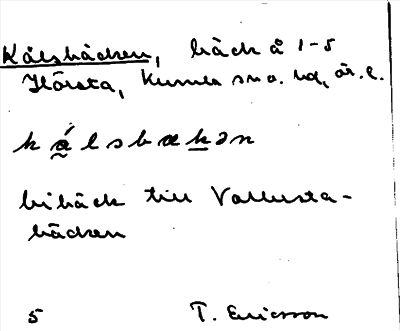 Kålsbäcken, bäck å 1-5
Hörsta, Kumla sn o. hd, Ör. l.
kålsbækən
bibäck till Vallersta-
bäcken
5 T. Ericsson